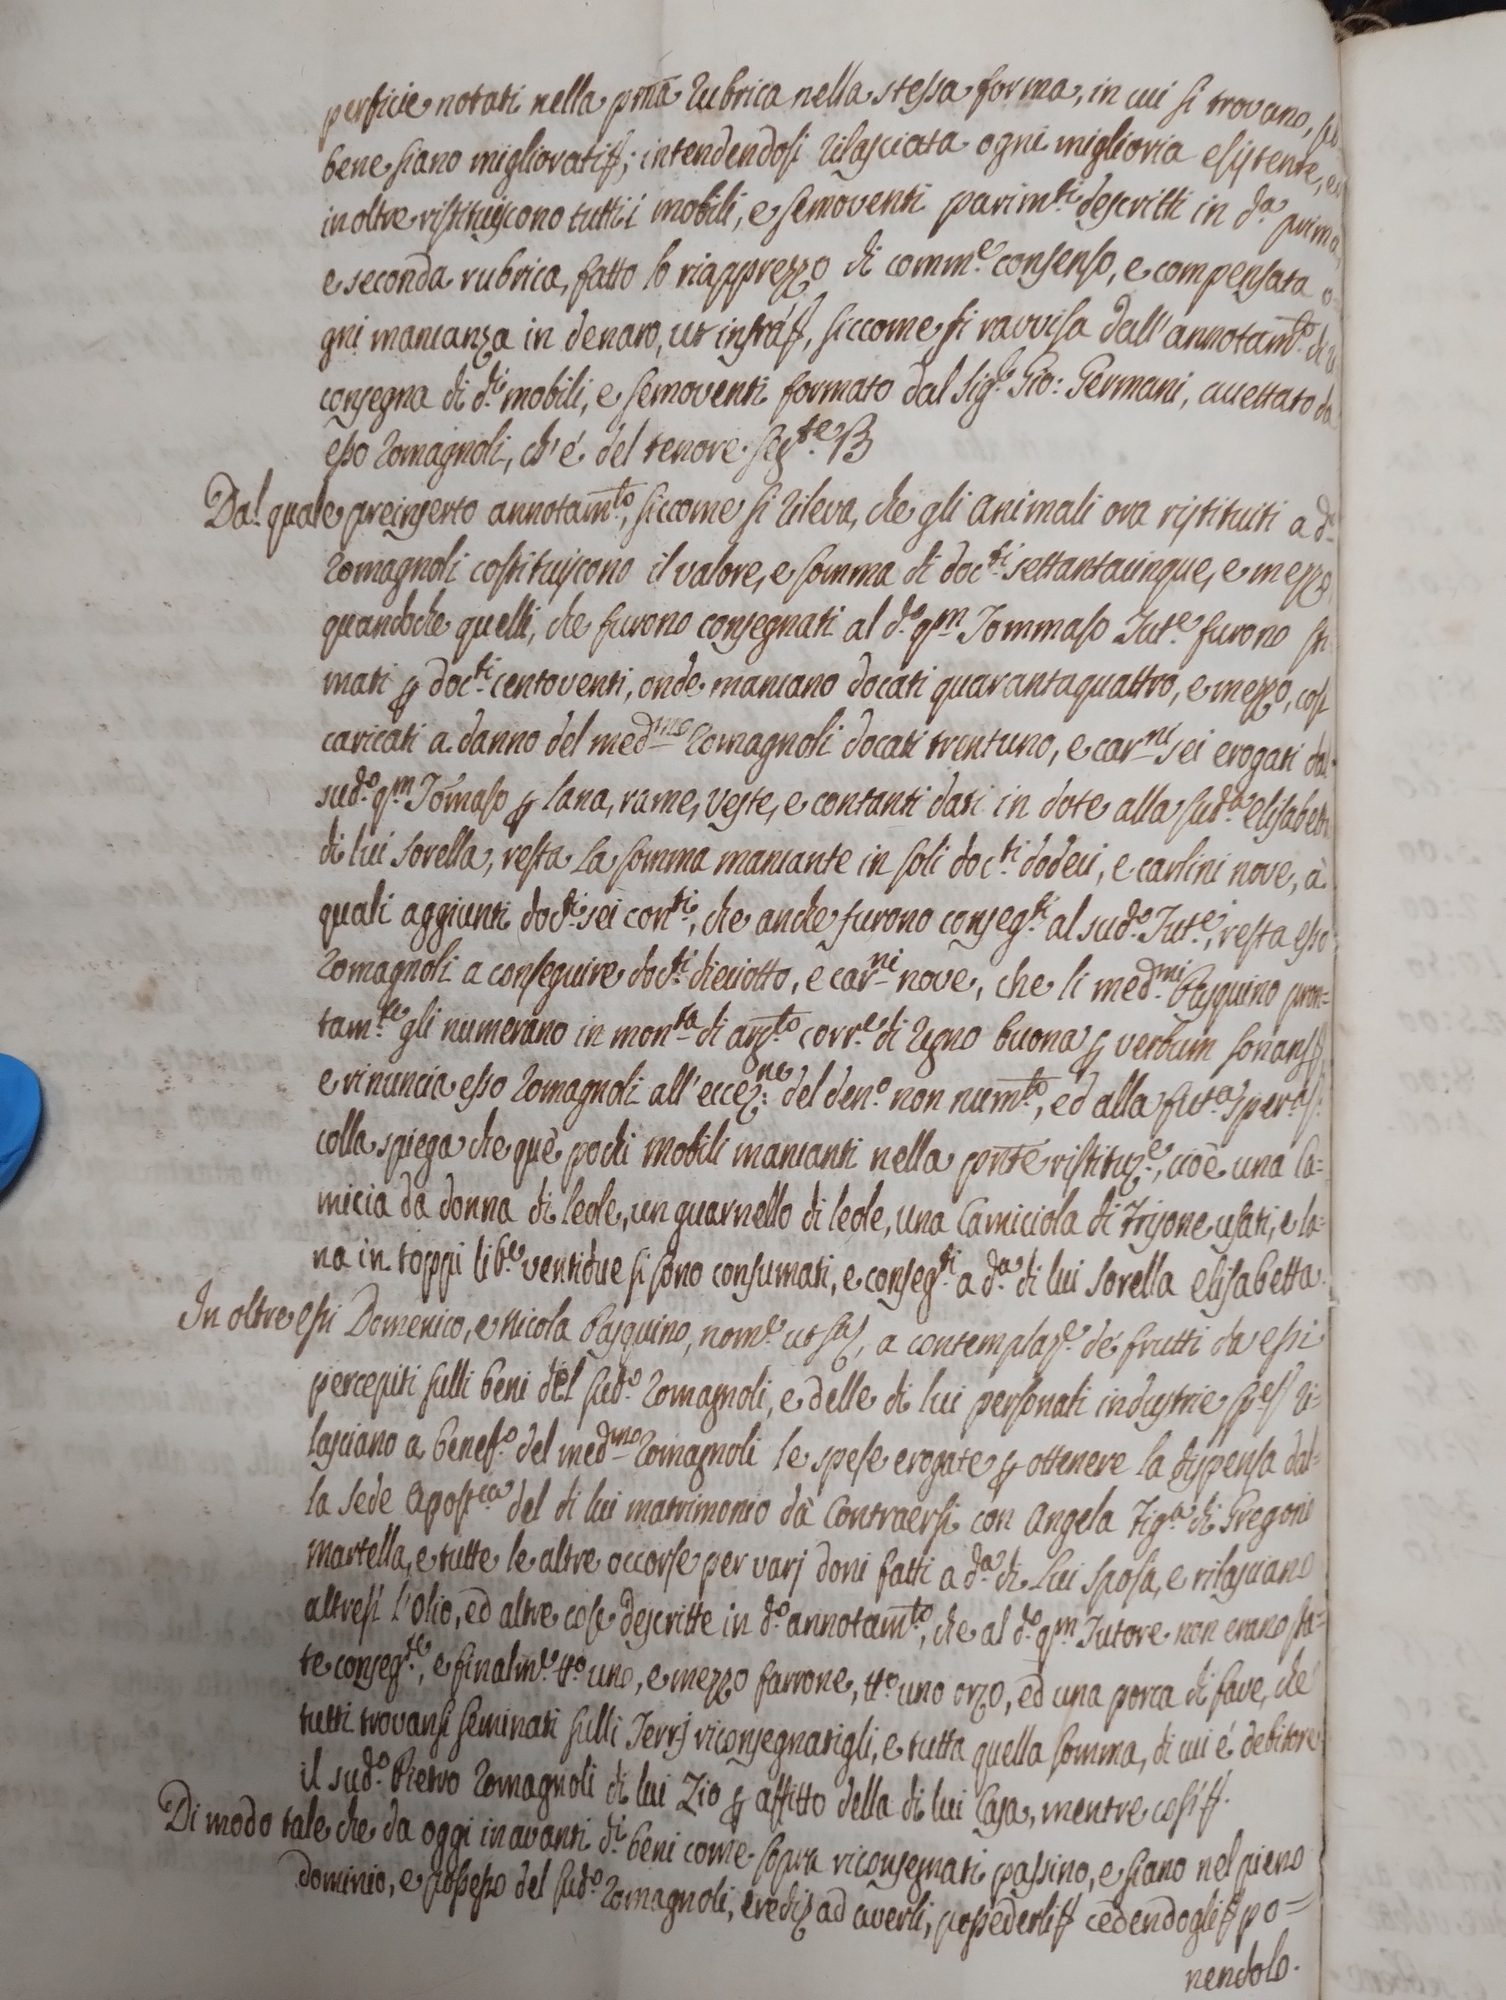 perficie notati nella pma rubrica nella stessa forma, in cui si trovano, se
bene siano migliorati ff; intendendosi rilasciata ogni miglioria esistente, ed
inoltre ristituiscono tutti i mobili, e semoventi parimti descritti in da prima,
e seconda rubrica, fatto lo riapprezzo di comme consenso, e compensata o-
gni mancanza in denaro, ut infrà ff, siccome si ravvisa dall'annotamto di
consegna di di mobili, e semoventi formato dal Sigr Gio: Germani, accettato da
esso Romagnoli, ch'è del tenore segte B
Dal quale preinserto annotamto, siccome si rileva, che gli animali ora ristituiti a do
Romagnoli costituiscono il valore, e somma di docti settantacinque, e mezzo,
quandoche quelli, che furono consegnati al do qm Tommaso Tute furono sti
mati p docti centoventi, onde mancano docati quarantaquattro, e mezzo, così
caricati a danno del medmo Romagnoli docati trentuno, e carni sei erogati dal
sudo qm Tomaso p lana, rame, veste, e contanti dati in dote alla suda Elisabetta
di lui sorella, resta la somma mancante in soli docti dodeci, e carlini nove, à
quali aggiunti docti sei conti, che anche furono consegti al sudo Tute, resta esso
Romagnoli a conseguire docti dieciotto, e carni nove, che li medmi Pasquino pron=
tamte gli numerano in monta di argto corre di Regno buona p verbum sonans ff
e rinuncia esso Romagnoli all'eccezne del deno non numto, ed alla futa spera ff
colla spiega che què pochi mobili mancanti nella pnte ristituze, cioè una ca=
micia da donna di leole, un guarnello di leole, una camiciola di frisone usati, e la=
na in toppi libe ventidue si sono consumati, e consegti a da di lui sorella Elisabetta.
In oltre essi Domenico, e Nicola Pasquino, nome ut sa, a contemplaze de frutti da essi
percepiti sulli beni del sudo Romagnoli, e delle di lui personali industrie spesf ri=
lasciano a benefo del medmo Romagnoli le spese erogate p ottenere la dispensa dal=
la Sede Apostca del di lui matrimonio dà contraersi con Angela figa di Gregorio
Martella, e tutte le altre occorse per varj doni fatti a da di lui sposa, e rilasciano
altresì l'olio, ed altre cose descritte in do annotamto, che al do qm Tutore non erano sta=
te consegte, e finalme tto uno, e mezzo farrone, tto uno orzo, ed una porca di fave, che
tutti trovansi seminati sulli Terrj riconsegnatigli, e tutta quella somma, di cui é debitore
il sudo Pietro Romagnoli di lui Zio p affitto della di lui Casa, mentre così ff.
Di modo tale che da oggi in avanti di beni come sopra riconsegnati passino, e siano nel pieno
dominio, e possesso del sudo Romagnoli, eredi ad averli, possederli ff cedendogli ff po=
nendolo.